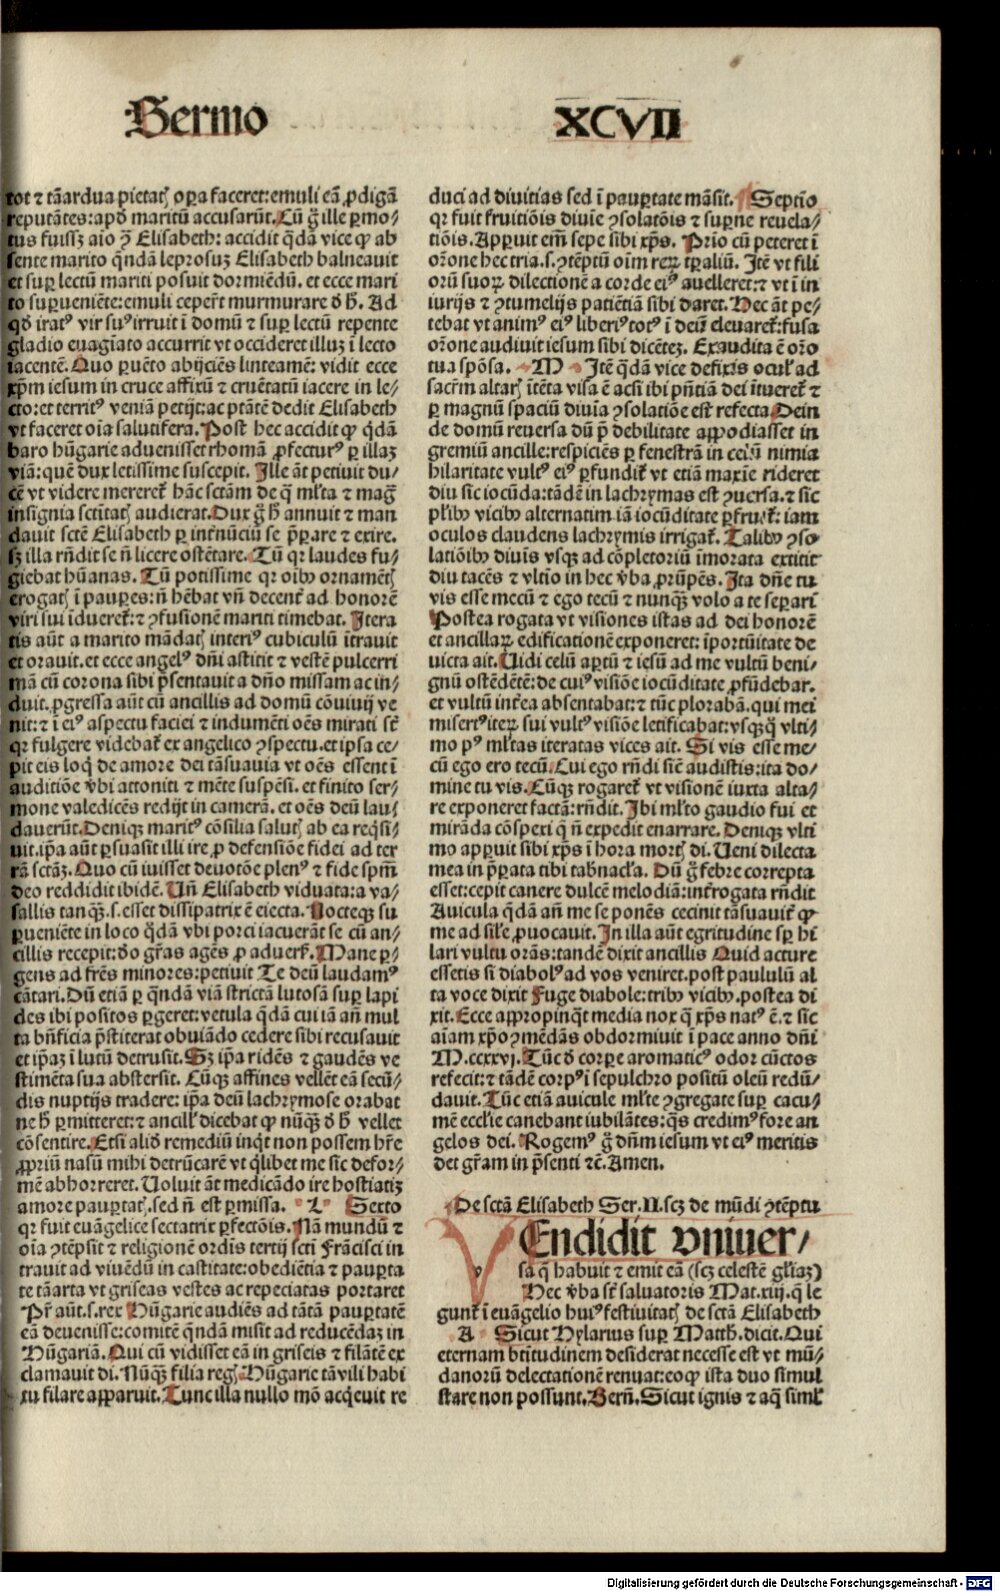 Sermo
XCVII
tot ⁊ tãardua pietatꝭ oꝑa faceret:emuli eã ꝓdigã
reputãtes:apđ maritũ accusarũt.Cũ g̃ ille ꝑmo⸗
tus fuissꝫ aĩo ꝯ̃ Elisabeth: accidit q̃dã vice ꝙ ab
sente marito q̃ndã leprosuꝫ Elisabeth balneauit
et suꝑ lectũ mariti posuit dormiẽdũ. et ecce mari
to suꝑueniẽte:emuli ceper̃t murmurare đ ħ. Ad
qđ iratꝰ vir suꝰ irruit ĩ domũ ⁊ suꝑ lectũ repente
gladio euagĩato accurrit vt occideret illuꝫ ĩ lecto
iacentẽ.Quo ꝑuẽto abijciẽs linteamẽ: vidit ecce
xp̃m iesum in cruce affixũ ⁊ cruẽtatũ iacere in le⸗
cto:et territꝰ veniã petijt:ac ptãtẽ dedit Elisabeth
vt faceret oĩa salutifera.Post hec accidit ꝙ q̃dã
baro hũgarie aduenisset rhomã ꝓfecturꝰ ꝑ illaꝫ
viã:quẽ dux letissime suscepit. Ille ãt petiuit du⸗
cẽ vt videre mereret̃ hãc sctãm de q̃ ml̃ta ⁊ mag̃
insignia sctĩtatꝭ audierat.Dux g̃ ħ annuit ⁊ man
dauit sctẽ Elisabeth ꝑ int̃nũciũ se p̃ꝑare ⁊ exire.
sꝫ illa rñdit se ñ licere ostẽtare. Tũ qꝛ laudes fu⸗
giebat hũanas. Tũ potissime qꝛ oĩbꝰ ornamẽtꝭ
erogatꝭ ĩ pauꝑes:ñ hẽbat vñ decent̃ ad honorẽ
viri sui ĩdueret̃:⁊ ꝯfusionẽ mariti timebat. Itera
tis aũt a marito mãdatꝭ interiꝰ cubiculũ ĩtrauit
et orauit.et ecce angelꝰ dñi astitit ⁊ vestẽ pulcerri
mã cũ corona sibi p̃sentauit a dño missam ac in⸗
duit.ꝓgressa aũt cũ ancillis ad domũ cõuiuij ve
nit:⁊ ĩ eiꝰ aspectu faciei ⁊ indumẽti oẽs mirati st̃
qꝛ fulgere videbat̃ ex angelico ꝯspectu.et ipsa ce⸗
pit eis loq̃ de amore dei tãsuauia vt oẽs essent ĩ
auditiõe v̾bi attoniti ⁊ mẽte suspẽsi. et finito ser⸗
mone valedicẽs redijt in camerã. et oẽs deũ lau⸗
dauerũt.Deniqꝫ maritꝰ cõsilia salutꝭ ab ea req̃si⸗
uit.ip̃a aũt ꝑsuasit illi ire ꝓ defensiõe fidei ad ter
rã sctãꝫ.Quo cũ iuisset deuotõe plenꝰ ⁊ fide sp̃m
deo reddidit ibidẽ. Uñ Elisabeth viduata:a va⸗
sallis tanqꝫ̃.s.esset dissipatrix ẽ eiecta.Nocteqꝫ su
ꝑueniẽte in loco q̃dã vbi porci iacuerãt se cũ an⸗
cillis recepit:đo gr̃as agẽs ꝓ aduerẜ.Mane ꝑ⸗
gens ad fr̃es minores:petiuit Te deũ laudamꝰ
cãtari.Dũ etiã ꝑ q̃ndã viã strictã lutosã suꝑ lapi
des ibi positos ꝑgeret:vetula q̃dã cui iã añ mul
ta bñficia p̃stiterat obuiãdo cedere sibi recusauit
et ip̃aꝫ ĩ lutũ detrusit.Sꝫ ip̃a ridẽs ⁊ gaudẽs ve
stimẽta sua abstersit. Cũqꝫ affines vellẽt eã secũ⸗
dis nuptijs tradere: ip̃a deũ lachrymose orabat
ne ħ ꝑmitteret:⁊ ancill̃ dicebat ꝙ nũqꝫ̃ đ ħ vellet
cõsentire.Etsi aliđ remediũ inq̃t non possem hr̃e
ꝓpriũ nasũ mihi detrũcarẽ vt q̃libet me sic defor⸗
mẽ abhorreret. Uoluit ãt medicãdo ire hostiatĩ
amore pauꝑtatꝭ.sed ñ est ꝑmissa. L Sexto
qꝛ fuit euãgelice sectatrix ꝑfectõis. Nã mundũ ⁊
oĩa ꝯtẽpsit ⁊ religionẽ ordĩs tertij scti Frãcisci in
trauit ad viuẽdũ in castitate:obediẽtia ⁊ pauꝑta
te tãarta vt griseas vestes ac repeciatas portaret
Pr̃ aũt.s.rex Hũgarie audiẽs ad tãtã pauꝑtatẽ
eã deuenisse:comitẽ q̃ndã misit ad reducẽdaꝫ in
Hũgariã.Qui cũ vidisset eã in griseis ⁊ filãtẽ ex
clamauit di.Nũqꝫ̃ filia regꝭ Hũgarie tãvili habi
tu filare apparuit.Tunc illa nullo mõ acq̃euit re
duci ad diuitias sed ĩ pauꝑtate mãsit. Septĩo
qꝛ fuit fruitiõis diuĩe ꝯsolatõis ⁊ suꝑne reuela⸗
tiõis.Apꝑuit em̃ sepe sibi xp̃s. Prĩo cũ peteret ĩ
orõne hec tria.s.ꝯtẽptũ oĩm reꝝ tꝑaliũ. Itẽ vt fili
orũ suoꝝ dilectionẽ a corde eiꝰ auelleret:⁊ vt ĩ in
iurijs ⁊ ꝯtumelijs patiẽtiã sibi daret.Hec ãt pe⸗
tebat vt animꝰ eiꝰ liberiꝰ totꝰ ĩ deũ eleuaret̃:fusa
orõne audiuit iesum sibi dicẽteꝫ. Exaudita ẽ orõ
tua spõsa. M Itẽ q̃dã vice defixis ocul̃ ad
sacr̃m altarꝭ ĩtẽta visa ẽ acsi ibi pñtiã dei ĩtueret̃ ⁊
ꝑ magnũ spaciũ diuĩa ꝯsolatiõe est refecta.Dein
de domũ reuersa dũ p̃ debilitate appodiasset in
gremiũ ancille:respiciẽs ꝑ fenestrã in celũ nimia
hilaritate vultꝰ eiꝰ ꝑfundit̃ vt etiã maxĩe rideret
diu sic iocũda:tãdẽ in lachrymas est ꝯuersa.⁊ sic
pl̃ibꝰ vicibꝰ alternatim iã iocũditate ꝑfruet̃: iam
oculos claudens lachrymis irrigat̃. Talibꝰ ꝯso
latiõibꝰ diuĩs vsqꝫ ad cõpletoriũ ĩmorata extitit
diu tacẽs ⁊ vltĩo in hec v̾ba ꝓrũpẽs. Ita dñe tu
vis esse mecũ ⁊ ego tecũ ⁊ nunqꝫ̃ volo a te seꝑari
Postea rogata vt visiones istas ad dei honorẽ
et ancillaꝝ edificationẽ exponeret: ĩportũitate de
uicta ait.Uidi celũ aꝑtũ ⁊ iesũ ad me vultũ beni⸗
gnũ ostẽdẽtẽ:de cuiꝰ visiõe iocũditate ꝓfũdebar.
et vultũ int̃ea absentabat:⁊ tũc plorabã.qui mei
misertꝰ iteꝝ sui vultꝰ visiõe letificabat:vsqꝫqꝙ vlti⸗
mo pꝰ ml̃tas iteratas vices ait. Si vis esse me⸗
cũ ego ero tecũ.Cui ego rñdi siẽ audistis:ita do⸗
mine tu vis. Cũqꝫ rogaret̃ vt visionẽ iuxta alta⸗
re exponeret factã:rñdit.Ibi ml̃to gaudio fui et
mirãda cõspexi q̃ ñ expedit enarrare. Deniqꝫ vlti
mo apꝑuit sibi xp̃s ĩ hora mortꝭ di.Ueni dilecta
mea in p̃ꝑata tibi tab̾nacl̃a. Dũ g̃ febre correpta
esset:cepit canere dulcẽ melodiã:int̃rogata rñdit
Auicula q̃dã añ me se ponẽs cecinit tãsuauit̃ ꝙ
me ad sil̃e ꝓuocauit.In illa aũt egritudine sꝑ hi
lari vultu orãs:tandẽ dixit ancillis Quid acture
essetis si diabolꝰ ad vos veniret.post paululũ al
ta voce dixit Fuge diabole:tribꝰ vicibꝰ.postea di
xit.Ecce appropinq̃t media nox q̃ xp̃s natꝰ ẽ.⁊ sic
aĩam xp̃o ꝯmẽdãs obdormiuit ĩ pace anno dñi
M.ccxxvj.Tũc đ corꝑe aromaticꝰ odor cũctos
refecit:⁊ tãdẽ corpꝰ ĩ sepulchro positũ oleũ redũ⸗
dauit.Tũc etiã auicule ml̃te ꝯgregate suꝑ cacu⸗
mẽ eccl̃ie canebant iubilãtes:q̃s credimꝰ fore an
gelos dei. Rogemꝰ g̃ dñm iesum vt eiꝰ meritis
det gr̃am in p̃senti ⁊c̃.Amen.
De sctã Elisabeth Ser.II.scꝫ de mũdi ꝯtẽptu
VEndidit vniuer⸗
sa q̃ habuit ⁊ emit eã (scꝫ celestẽ gl̃iaꝫ)
Hec v̾ba st̃ saluatoris Mat.xiij.q̃ le
gunt̃ ĩ euãgelio huiꝰ festiuitatꝭ de sctã Elisabeth
A Sicut Hylarius suꝑ Matth.dicit.Qui
eternam btĩtudinem desiderat necesse est vt mũ⸗
danorũ delectationẽ renuat:eoꝙ ista duo simul
stare non possunt.Bern̄.Sicut ignis ⁊ aq̃ simĺ
Digitalisierung gefördert durch die Deutsche Forschungsgemeinschaft - DFG